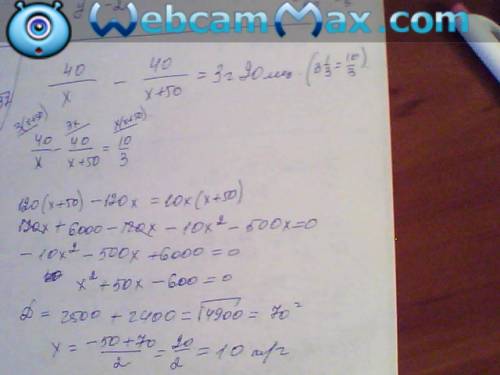 WebcamMax.com
40/x - 40/(x+50) = 3г 20 мин. (3 1/3 = 10/3)
3(x+50) 3x x(x+50)
40/x - 40/(x+50) = 10/3
120(x+50) - 120x = 10x(x+50)
120x + 6000 - 120x - 10x² - 500x = 0
- 10x² - 500x + 6000 = 0
x² + 50x - 600 = 0
D = 2500 + 2400 = √4900 = 70²
x = (-50+70)/2 = 20/2 = 10